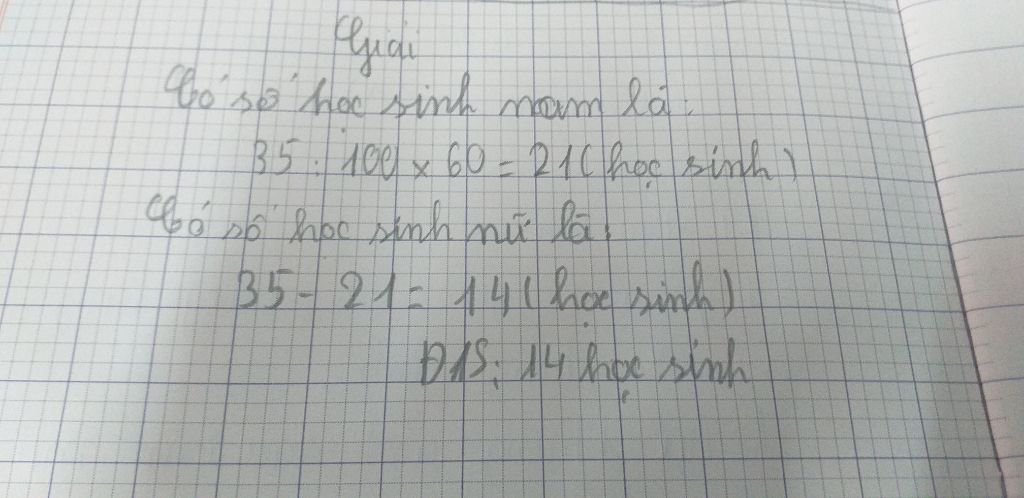 Giải
Có số học sinh nam là:
35 : 100 x 60 = 21 ( học sinh )
Có số học sinh nữ là:
35 - 21 = 14 ( học sinh )
Đ/S: 14 học sinh